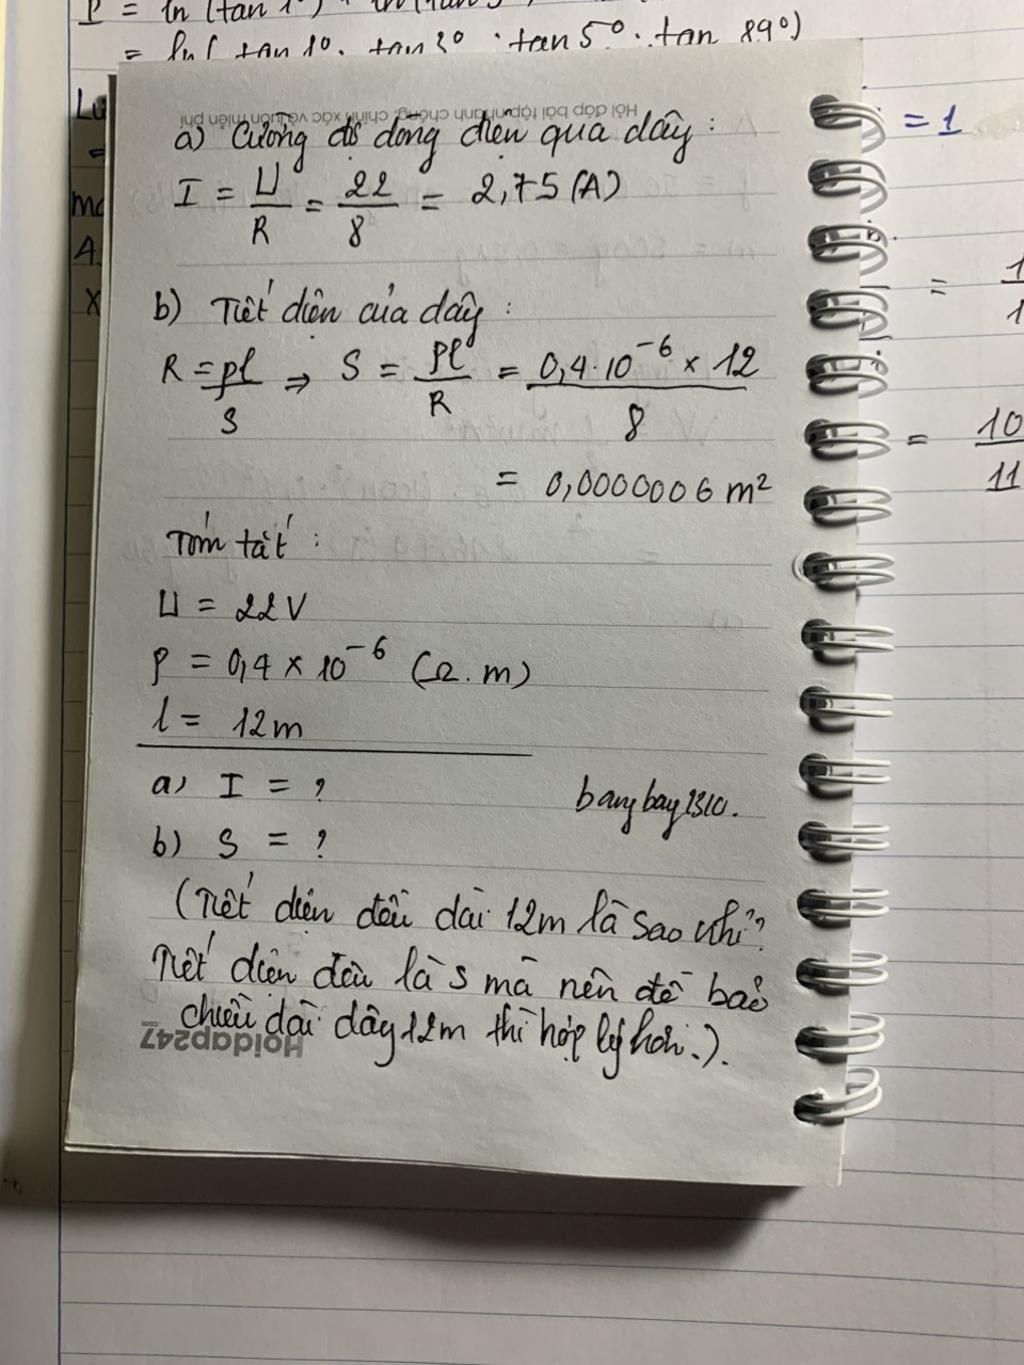 = ln (tan 1°
= ln ( tan 1° . tan 3° . tan 5° . tan 89°)
Hỏi đáp bài tập nhanh chóng, chính xác và luôn miễn phí
a) Cường độ dòng điện qua dây :
I = U/R = 22/8 = 2,75 (A)
b) Tiết diện của dây :
R = ρl/S ⇒ S = ρl/R = 0,4.10⁻⁶ × 12/8
= 0,0000006 m²
Tóm tắt :
U = 22V
ρ = 0,4 × 10⁻⁶ (Ω.m)
l = 12m
a) I = ?
b) S = ?
(Tiết diện đều dài 12m là sao nhỉ?
Tiết diện đều là S mà nên đề bảo
chiều dài dây 12m thì hợp lý hơn.).
Hoidap247
= 1
=
= 10/11